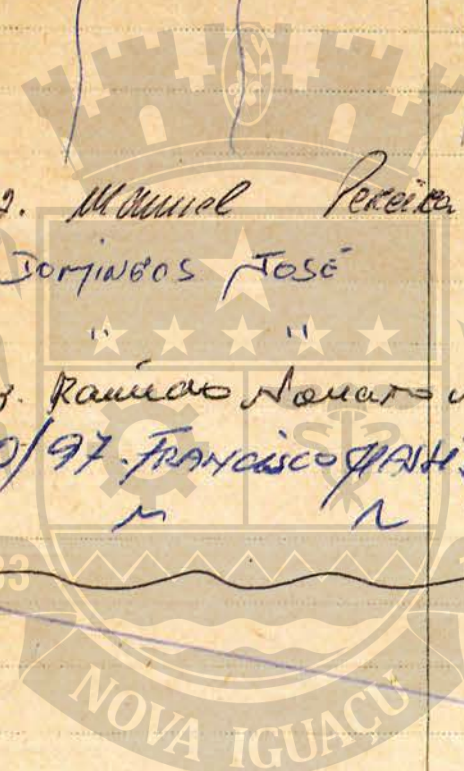 2. Manuel Pereira
DOMINGOS JOSÉ
" "
3. Raimundo Nonato
0/97. FRANCISCO
" "
33
NOVA IGUAÇU